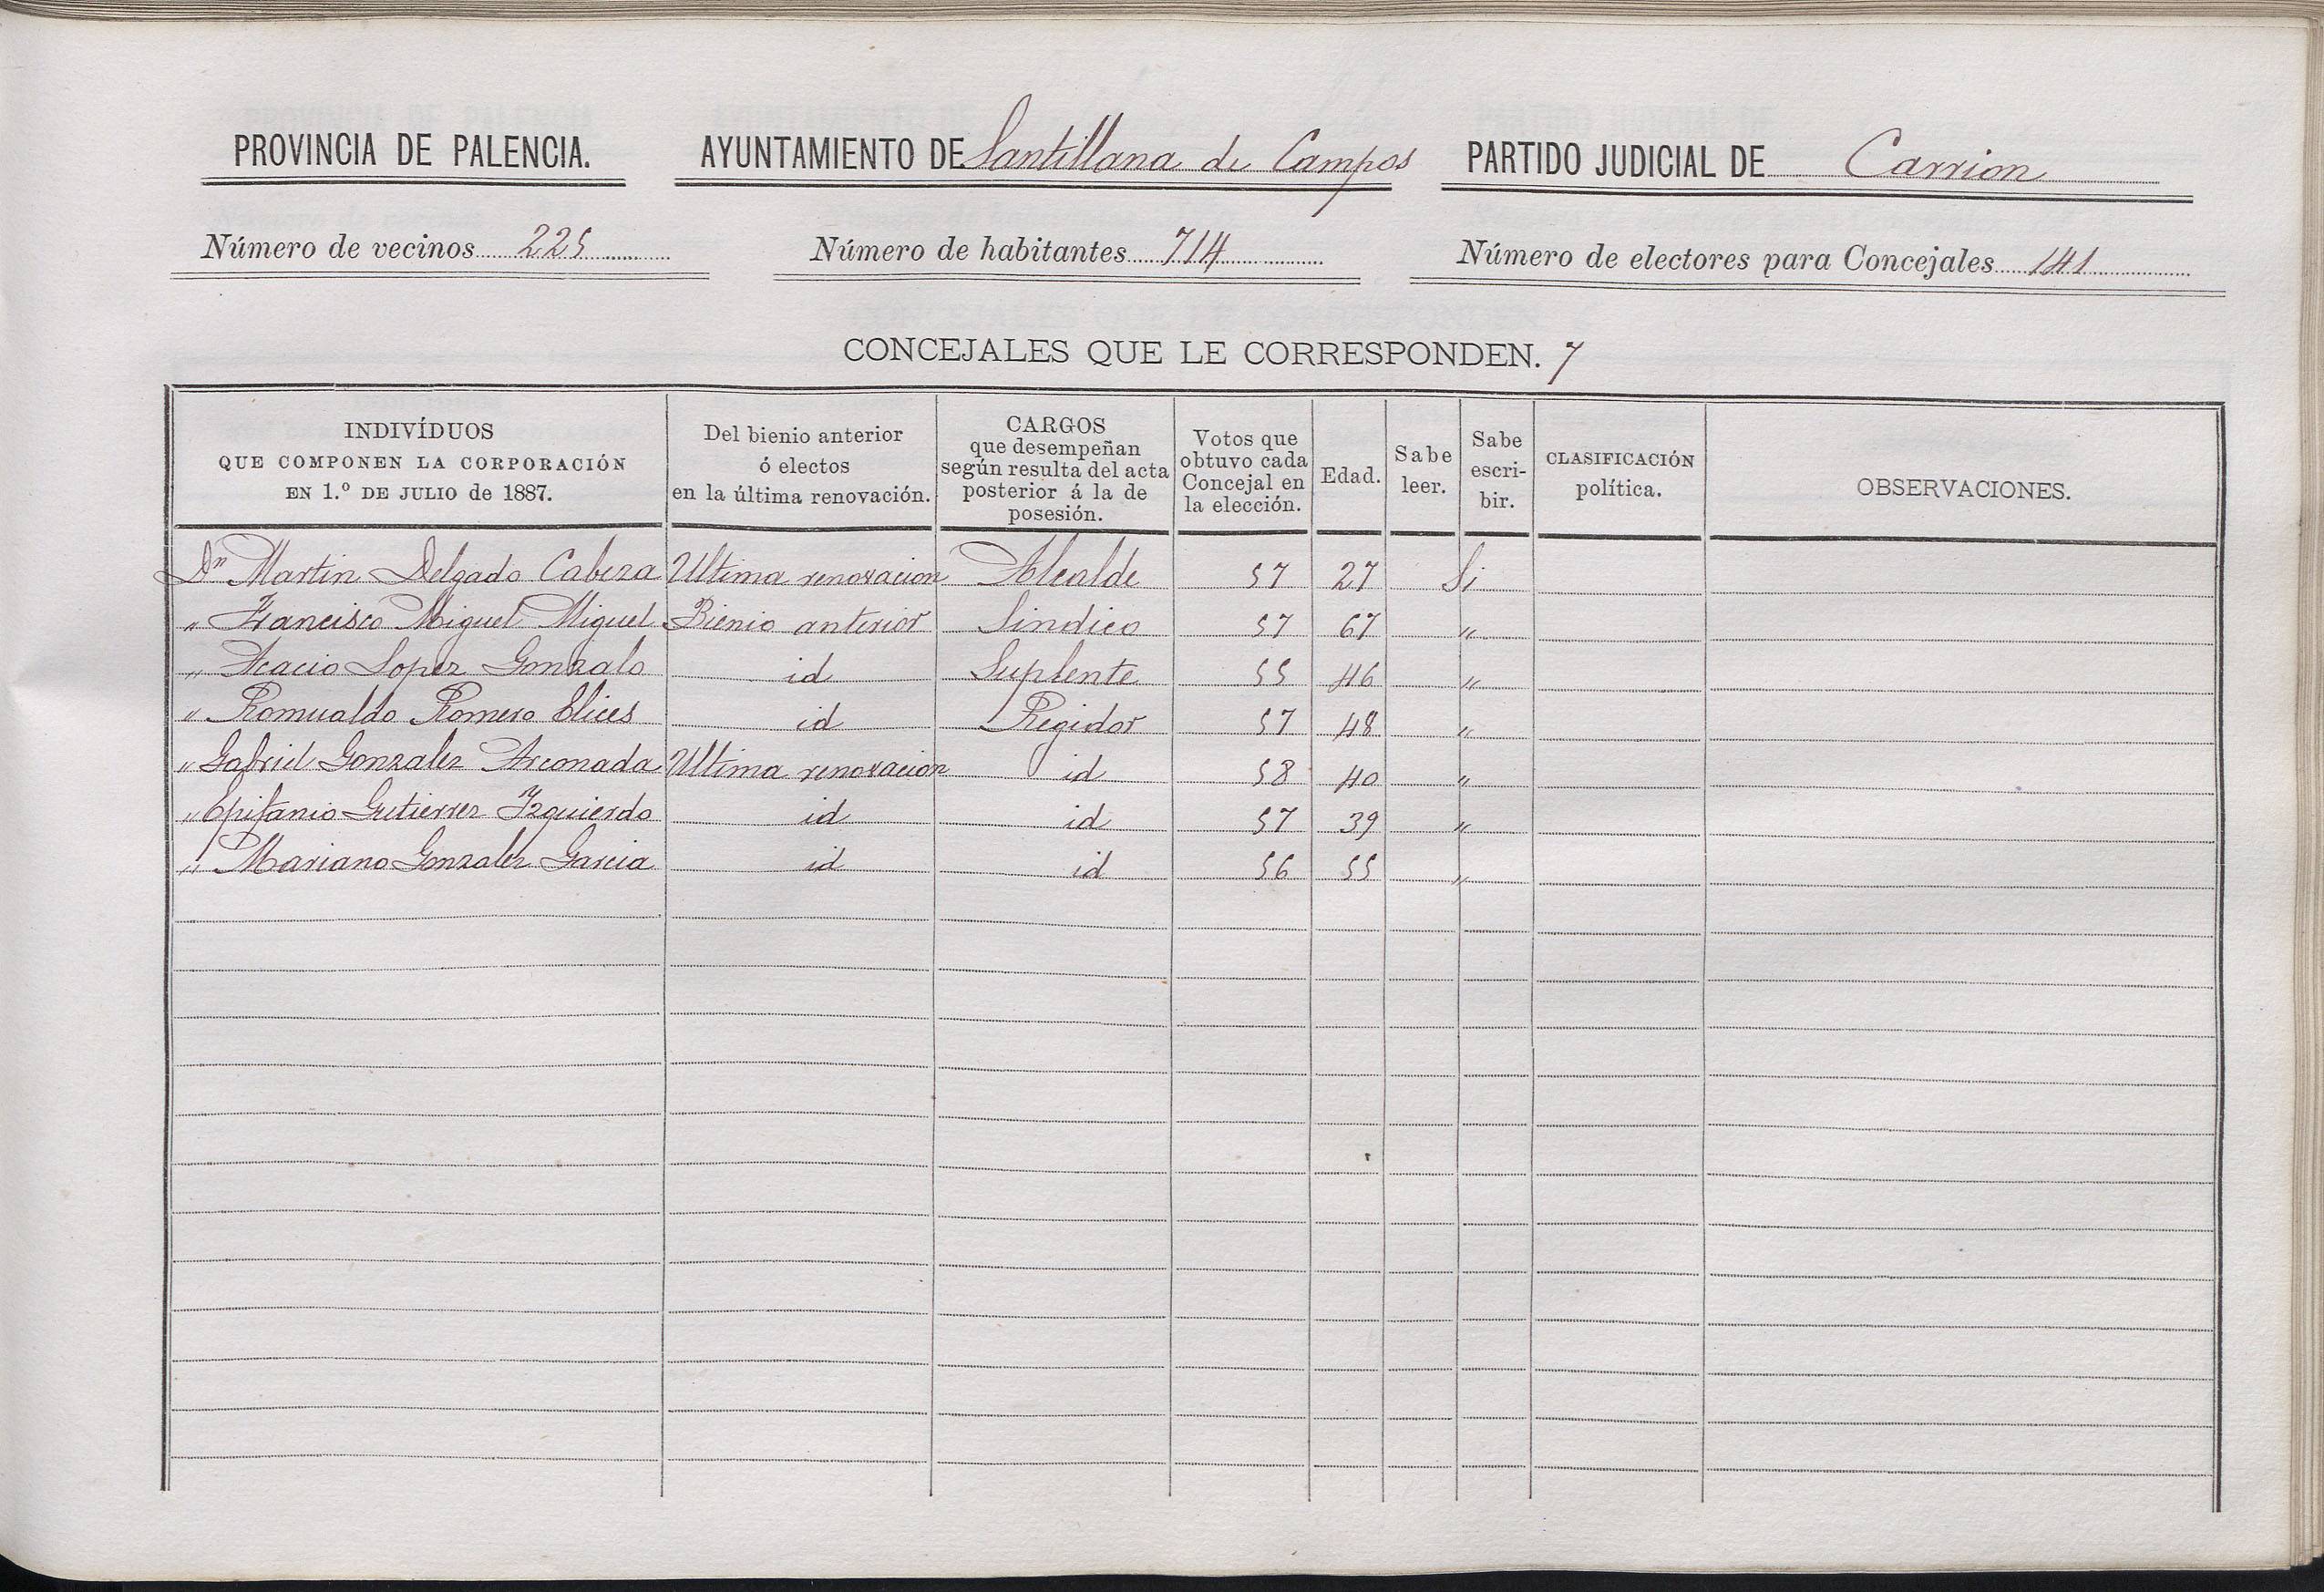 PROVINCIA DE PALENCIA. AYUNTAMIENTO DE Santillana de Campos PARTIDO JUDICIAL DE Carrion
Número de vecinos 225 Número de habitantes 714 Número de electores para Concejales 141
CONCEJALES QUE LE CORRESPONDEN. 7
INDIVÍDUOS
QUE COMPONEN LA CORPORACIÓN
EN 1.º DE JULIO de 1887.
Del bienio anterior
ó electos
en la última renovación.
CARGOS
que desempeñan
según resulta del acta
posterior á la de
posesión.
Votos que
obtuvo cada
Concejal en
la elección.
Edad.
Sabe
leer.
Sabe
escri-
bir.
CLASIFICACIÓN
política.
OBSERVACIONES.
Dn Martin Delgado Cabeza Ultima renovacion Alcalde 57 27 Si
" Francisco Miguel Miguel Bienio anterior Sindico 57 67 "
" Acacio Lopez Gonzalo id Suplente 55 46 "
" Romualdo Romero Elices id Regidor 57 48 "
" Gabriel Gonzalez Arconada Ultima renovacion id 58 40 "
" Epifanio Gutierrez Izquierdo id id 57 39 "
" Mariano Gonzalez Garcia id id 56 55 "